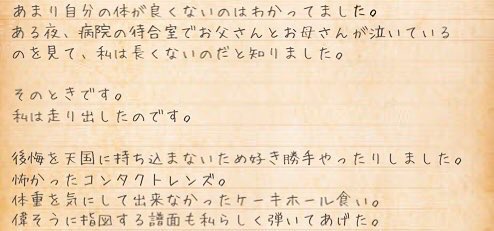 あまり自分の体が良くないのはわかってました。
ある夜、病院の待合室でお父さんとお母さんが泣いている
のを見て、私は長くないのだと知りました。
そのときです。
私は走り出したのです。
後悔を天国に持ち込まないため好き勝手やったりしました。
怖かったコンタクトレンズ。
体重を気にして出来なかったケーキホール食い。
偉そうに指図する譜面も私らしく弾いてあげた。